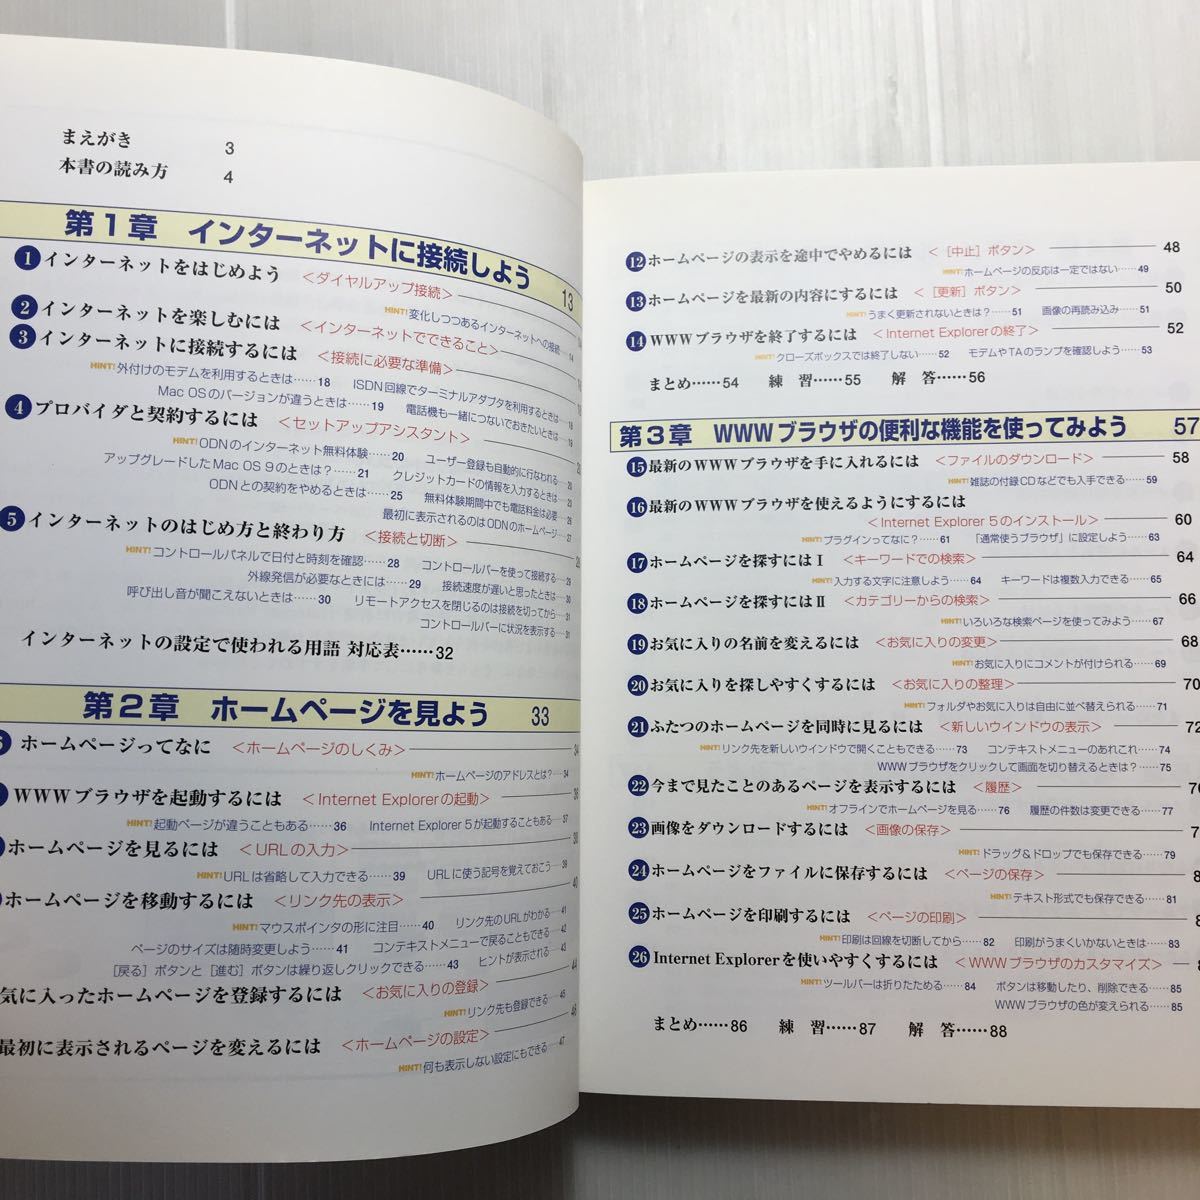 まえがき 3
本書の読み方 4
第1章 インターネットに接続しよう 13
1 インターネットをはじめよう <ダイヤルアップ接続>
HINT! 変化しつつあるインターネットへの接続……14
2 インターネットを楽しむには <インターネットでできること>
3 インターネットに接続するには <接続に必要な準備>
HINT! 外付けのモデムを利用するときは……18 ISDN回線でターミナルアダプタを利用するときは……
Mac OSのバージョンが違うときは……19 電話機も一緒につないでおきたいときは……19
4 プロバイダと契約するには <セットアップアシスタント>
HINT! ODNのインターネット無料体験……20 ユーザー登録も自動的に行なわれる……20
アップグレードしたMac OS 9のときは?……21 クレジットカードの情報を入力するときは……23
ODNとの契約をやめるときは……25 無料体験期間中でも電話料金は必要……26
最初に表示されるのはODNのホームページ……27
5 インターネットのはじめ方と終わり方 <接続と切断>
HINT! コントロールパネルで日付と時刻を確認……28 コントロールバーを使って接続する……29
外線発信が必要なときには……29 接続速度が遅いと思ったときは……30
呼び出し音が聞こえないときは……30 リモートアクセスを閉じるのは接続を切ってから……31
コントロールバーに状況を表示する……31
インターネットの設定で使われる用語 対応表……32
第2章 ホームページを見よう 33
ホームページってなに <ホームページのしくみ> 34
HINT! ホームページのアドレスとは?……34
WWWブラウザを起動するには <Internet Explorerの起動> 36
HINT! 起動ページが違うこともある……36 Internet Explorer 5が起動することもある……37
ホームページを見るには <URLの入力> 38
HINT! URLは省略して入力できる……39 URLに使う記号を覚えておこう……39
ホームページを移動するには <リンク先の表示> 40
HINT! マウスポインタの形に注目……40 リンク先のURLがわかる……41
ページのサイズは随時変更しよう……41 コンテキストメニューで戻ることもできる……42
[戻る]ボタンと[進む]ボタンは繰り返しクリックできる……43 ヒントが表示される……43
気に入ったホームページを登録するには <お気に入りの登録> 44
HINT! リンク先も登録できる……45
最初に表示されるページを変えるには <ホームページの設定> 46
HINT! 何も表示しない設定にもできる……47
12 ホームページの表示を途中でやめるには <[中止]ボタン> 48
HINT! ホームページの反応は一定ではない……49
13 ホームページを最新の内容にするには <[更新]ボタン> 50
HINT! うまく更新されないときは?……51 画像の再読み込み……51
14 WWWブラウザを終了するには <Internet Explorerの終了> 52
HINT! クローズボックスでは終了しない……52 モデムやTAのランプを確認しよう……53
まとめ……54 練 習……55 解 答……56
第3章 WWWブラウザの便利な機能を使ってみよう 57
15 最新のWWWブラウザを手に入れるには <ファイルのダウンロード> 58
HINT! 雑誌の付録CDなどでも入手できる……59
16 最新のWWWブラウザを使えるようにするには
<Internet Explorer 5のインストール> 60
HINT! プラグインってなに?……61 「通常使うブラウザ」に設定しよう……63
17 ホームページを探すにはⅠ <キーワードでの検索> 64
HINT! 入力する文字に注意しよう……64 キーワードは複数入力できる……65
18 ホームページを探すにはⅡ <カテゴリーからの検索> 66
HINT! いろいろな検索ページを使ってみよう……67
19 お気に入りの名前を変えるには <お気に入りの変更> 68
HINT! お気に入りにコメントが付けられる……69
20 お気に入りを探しやすくするには <お気に入りの整理> 70
HINT! フォルダやお気に入りは自由に並べ替えられる……71
21 ふたつのホームページを同時に見るには <新しいウインドウの表示> 72
HINT! リンク先を新しいウインドウで開くこともできる……73 コンテキストメニューのあれこれ……74
WWWブラウザをクリックして画面を切り替えるときは?……75
22 今まで見たことのあるページを表示するには <履歴>
HINT! オフラインでホームページを見る……76 履歴の件数は変更できる……77
23 画像をダウンロードするには <画像の保存>
HINT! ドラッグ&ドロップでも保存できる……79
24 ホームページをファイルに保存するには <ページの保存>
HINT! テキスト形式でも保存できる……81
25 ホームページを印刷するには <ページの印刷>
HINT! 印刷は回線を切断してから……82 印刷がうまくいかないときは……83
26 Internet Explorerを使いやすくするには <WWWブラウザのカスタマイズ>
HINT! ツールバーは折りたためる……84 ボタンは移動したり、削除できる……85
WWWブラウザの色が変えられる……85
まとめ……86 練 習……87 解 答……88